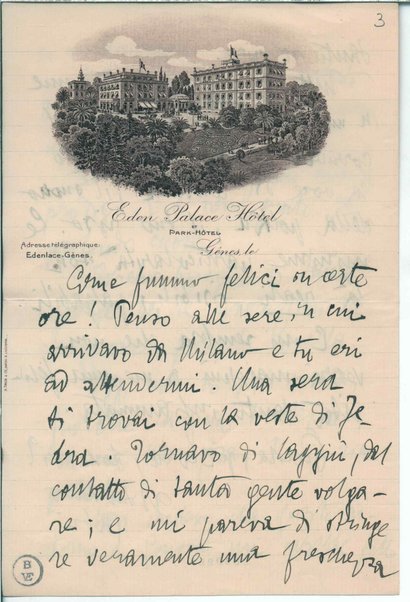 3
Eden Palace Hôtel
ET
PARK-HÔTEL
Adresse télégraphique:
Edenlace-Gênes.
Gênes, le
Come fummo felici in certe
ore! Penso alle sere in cui
arrivavo da Milano e tu eri
ad attendermi. Una sera
ti trovai con la veste di Fe-
dra. Tornavo di laggiù, dal
contatto di tanta gente volga-
re; e mi pareva di stringe
re veramente una freschezza
B
VE